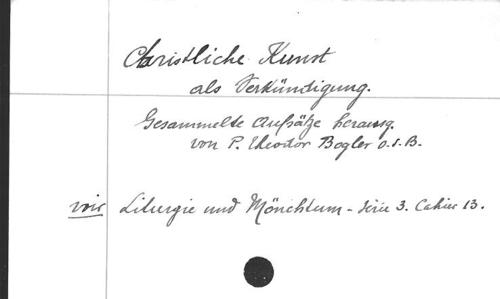 Christliche Kunst
als Verkündigung.
Gesammelte Aufsätze herausg.
von P. Theodor Bogler O.S.B.
voir Liturgie und Mönchtum - Série 3. Cahier 13.